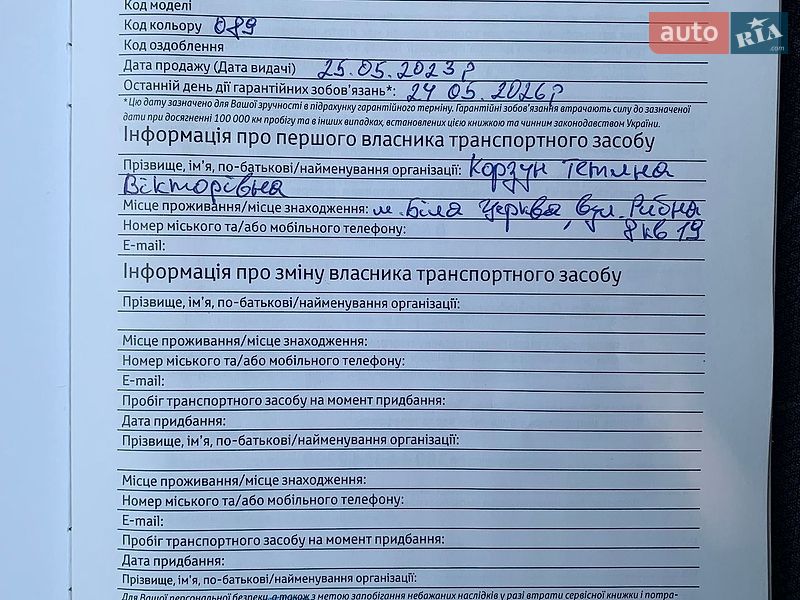 Код моделі
Код кольору 089
Код оздоблення
Дата продажу (Дата видачі) 25.05.2023 р
Останній день дії гарантійних зобов'язань*: 24 05.2026 р
*Цю дату зазначено для Вашої зручності в підрахунку гарантійного терміну. Гарантійні зобов'язання втрачають силу до зазначеної
дати при досягненні 100 000 км пробігу та в інших випадках, встановлених цією книжкою та чинним законодавством України.
Інформація про першого власника транспортного засобу
Прізвище, ім'я, по-батькові/найменування організації: Корзун Тетяна
Вікторівна
Місце проживання/місце знаходження: м. Біла Церква, вул. Рибна
Номер міського та/або мобільного телефону: 8 кв 19
E-mail:
Інформація про зміну власника транспортного засобу
Прізвище, ім'я, по-батькові/найменування організації:
Місце проживання/місце знаходження:
Номер міського та/або мобільного телефону:
E-mail:
Пробіг транспортного засобу на момент придбання:
Дата придбання:
Прізвище, ім'я, по-батькові/найменування організації:
Місце проживання/місце знаходження:
Номер міського та/або мобільного телефону:
E-mail:
Пробіг транспортного засобу на момент придбання:
Дата придбання:
Прізвище, ім'я, по-батькові/найменування організації:
Для Вашої персональної безпеки, а також з метою запобігання небажаних наслідків у разі втрати сервісної книжки і потра-
auto RIA .com